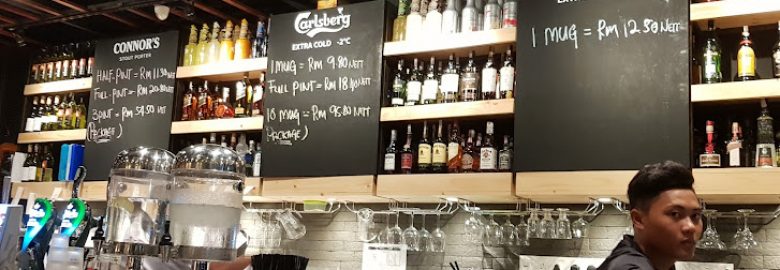 CONNOR'S
STOUT PORTER
HALF-PINT = RM 11.50 NETT
FULL-PINT = RM 20.80 NETT
3 PINT = RM 54.50 NETT
(PACKAGE)
Carlsberg
EXTRA COLD -2°C
1 MUG = RM 9.80 NETT
FULL PINT = RM 18.40 NETT
10 MUG = RM 95.80 NETT
(PACKAGE)
1 MUG = RM 12.50 NETT
Carlsberg